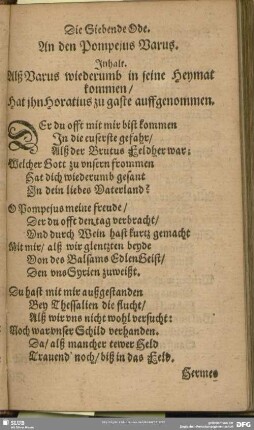 Die Siebende Ode.
An den Pompejus Varus.
Inhalt.
Alß Varus wiederumb in seine Heymat
kommen/
Hat jhn Horatius zu gaste auffgenommen.
DEr du offt mit mir bist kommen
In die euserste gefahr/
Alß der Brutus Feldherr war:
Welcher Gott zu vnsern frommen
Hat dich wiederumb gesant
In dein liebes Vaterland?
O Pompejus meine freude/
Der du offt den tag verbracht/
Vnd durch Wein hast kurtz gemacht
Mit mir/ alß wir glentzten beyde
Von des Balsams Edlen Geist/
Den vns Syrien zuweißt.
Du hast mit mir außgestanden
Bey Thessalien die flucht/
Alß wir vns nicht wohl versucht:
Noch war vnser Schild verhanden.
Da/ alß mancher tewer Held
Trauend' noch/ biß in das Feld.
Hermes
SLUB
DFG